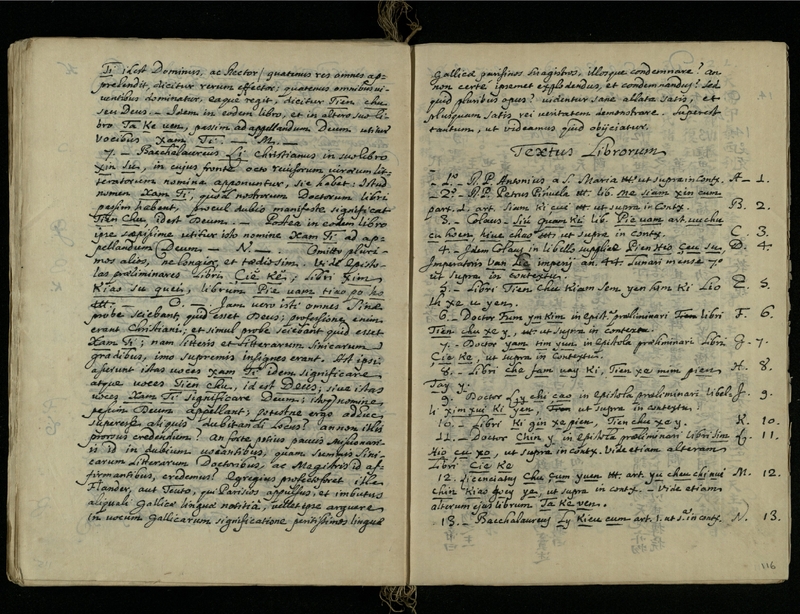 Ti idest Dominus, ac Rector/ quatenus res omnes ap-
prehendit, dicitur rerum effector; quatenus omnibus vi-
ventibus dominatur, eaque regit, dicitur Tien chu
seu Deus. - Idem in eodem libro, et in altero suo li-
bro Ta Ke ven, passim ad appellandum Deum utitur
vocibus Xam Ti. - M. -
7. - Baccalaureus Li Christianus in suo libro
Xin Su, in cujus fronte octo virorum
litteratorum nomine apponuntur, sic habet: Istud
nomen Xam Ti, quod nostrorum Doctorum libri
passim habent, procul dubio manifeste significat
Tien Chu idest Deum. - Postea in eodem libro
ipse saepissime utitur isto nomine Xam Ti ad ap-
pellandum Deum - N. - Omitto pluri-
mos alios, ne longior, et taedio sim. Vide Episto-
las praeliminares libri Cie Ke, libri Kim
Kiao su quei, librum Pie vam tiao po ho
- O. - Jam vero isti omnes Sinae
probe sciebant, quid esset Deus; professione enim
erant Christiani; et simul probe sciebant quid esset
Xam Ti; nam litteris et litterarum sinicarum
gradibus, imo supremis insignes erant. Ast ipsi
asserunt istas voces Xam Ti idem significare
atque voces Tien Chu, id est Deus; sive istas
voces Xam Ti significare Deum; isto nomine
passim Deum appellant; potestne ergo adhuc
superesse aliquis dubitandi locus? an non illis
prorsus credendum? An forte potius paucis missionari-
is id in dubium vocantibus, quam summis Sini-
carum Litterarum Doctoribus, ac Magistris id af-
firmantibus, credemus? Egregius profecto foret ille
Flander, aut Teuto, qui Parisios appulsus, et imbutus
aliquali Gallicae linguae notitia, vellet ipse arguere
in vocum Gallicarum significatione peritissimos linguae
Gallicae parisinos magistros, illosque condemnare? An
non certe ipsemet explodendus, et condemnandus? Sed
quid pluribus opus? videntur sane allata satis, et
plusquam satis rei veritatem demonstrare. Superest
tantum, ut videamus quid objiciatur.
Textus Librorum
- 1.º R. P. Antonius a S. Maria ut supra in contx. A - 1.
- 2.º R. P. Petrus Pinuela lib. me siam xin cum
part. 1. art. Siam Ki cue ut supra in Contx. B. 2.
3. - Colaus - Siu Quam Ki lib. Pie vam art. vu chu
cu hoen hiue chao ut supra in contx. C. 3.
4. - Idem Colaus in libello supplice Pien Hio Ceu Su, D. 4.
Imperatoris Van Lie imperij an. 44. lunari mense 7º
ut supra in contextu.
5. - Libri Tien Chu Kiam sem yen ham Ki Lio E. 5.
th xe u yen.
6. - Doctor Fum ym Kim in epist. praeliminari libri F. 6.
Tien Chu xe y, ut supra in contextu.
7. - Doctor yam tim yun in epistola praeliminari Libri G. 7.
Cie Ke, ut supra in contextu.
8. - Libri che fam vay Ki, Tien xe mim pien H. 8.
Tay y.
9. Doctor Ly chi cao in epistola praeliminari libelli J. 9.
li xim xui Ki yen, ut supra in contextu.
10. - Libri Ki gin xe pien, Tien chu xe y. K. 10.
11. - Doctor Chin y in epistola praeliminari libri sim L. 11.
Hio cu xo, ut supra in contx. Vide etiam alteram
Libri Cie Ke
12. Licenciatus Chu Cum yuen art. yu cheu chi nui M. 12.
Chin Kiao goey ye, ut supra in contx. - Vide etiam
alterum ejus librum Ta Ke ven.
- 13. - Baccalaureus Ly Kieu cum art. 1. ut sa. in contx. N. 13.
116